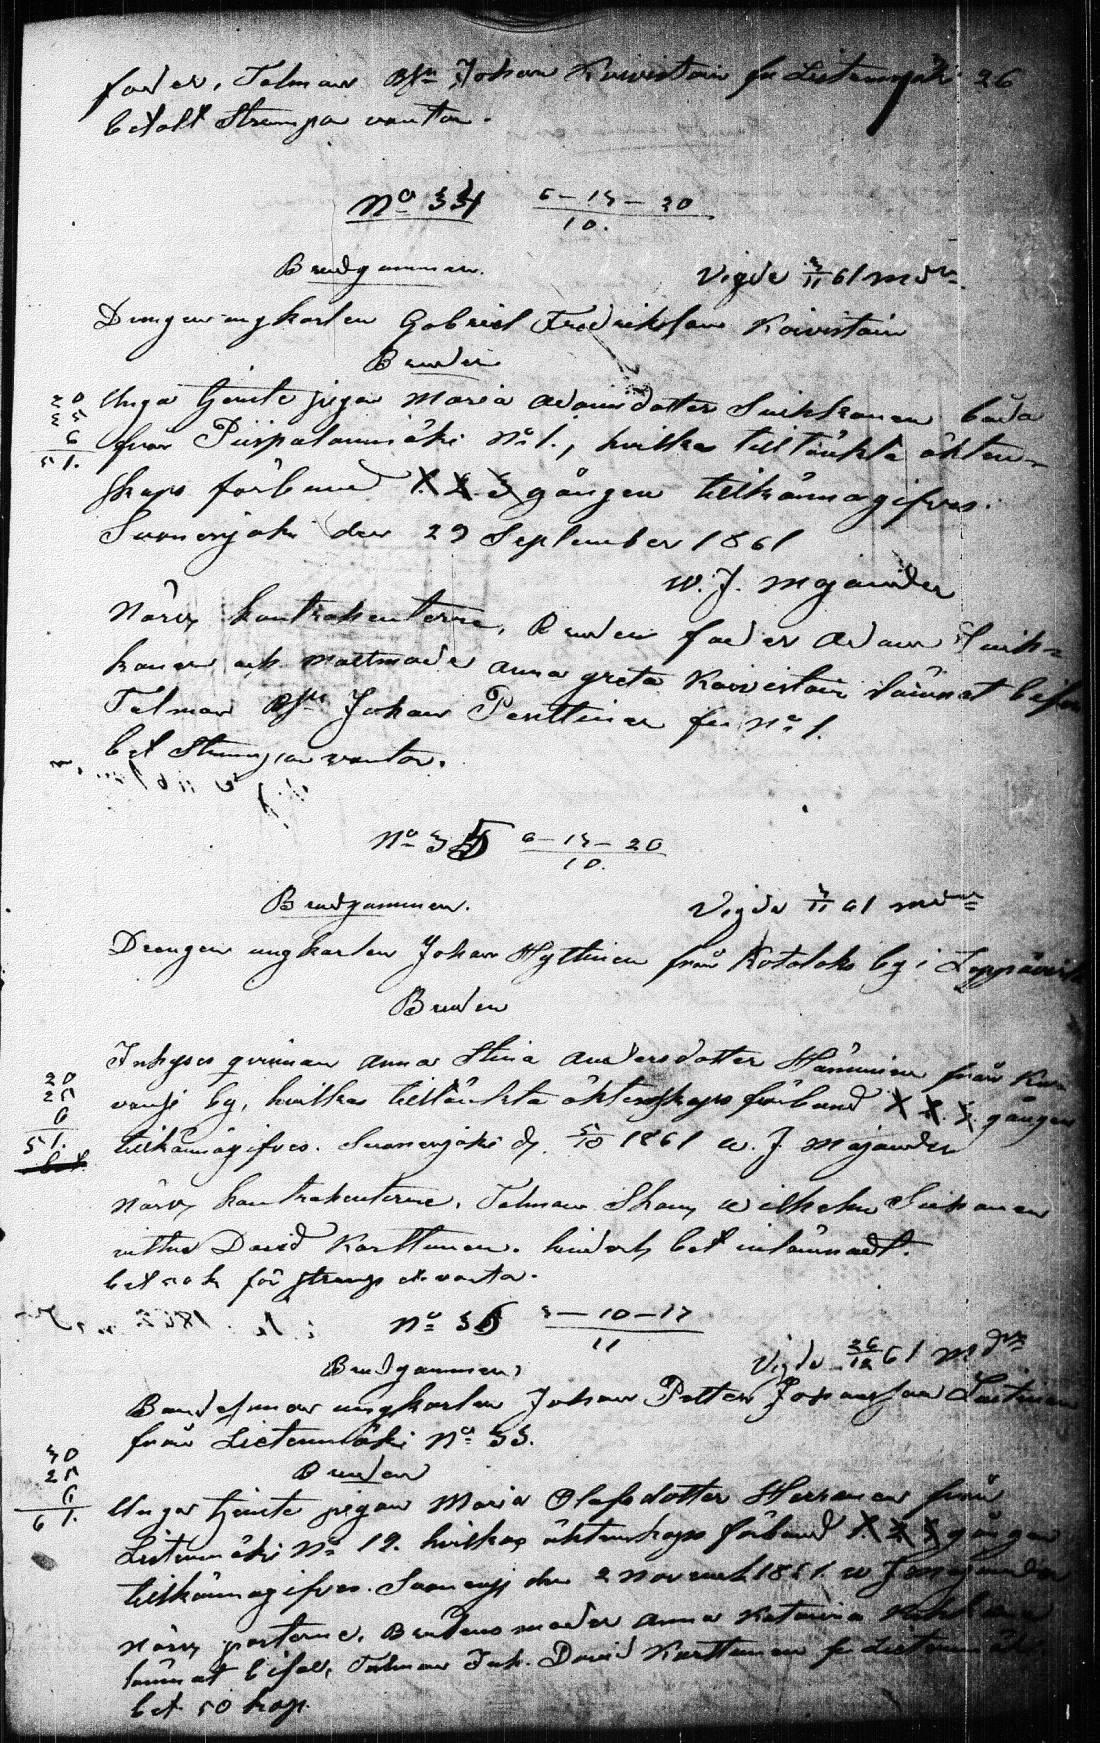 fader, Talman Bn Johan Koivistoin fr Lietenmäki 26
betalt Strumpor vantar.
No 34 6–13–20
10.
Brudgummen.
Vigde 3/11 61 mdr
Drängen ungkarlen Gabriel Fredriksson Koivistoin
Bruden
20
25
6
51.
Unga tjenste pigan Maria Adamsdotter Suihkonen båda
från Piispalanmäki No 1., hvilkas tilltänkta äkten-
skaps förbund 1. 2. 3 gången tillkännagifves.
Suonenjoki den 29 September 1861
W. J. Majander
Närv. kontrahenterne, Brudens fader Adam Suih-
konen och matmoder Anna Greta Koivistoin lämnat bifall
Talman Johan Penttinen fr No 1.
bet Strumpor vantar.
No 35 6–13–20
10.
Brudgummen.
Vigde 3/11 61 mdr
Drängen ungkarlen Johan Hyttinen från Kotolaks by i Leppävirta
Bruden
20
25
6
51.
Inhyses qvinnan Anna Stina Andersdotter Hänninen från
by, hvilkas tilltänkta äktenskaps förbund 1. 2. 3. gången
tillkännagifves. Suonenjoki d. 5/10 1861 W. J. Majander
Närv. kontrahenterne, Talman Wilhelm Suihonen
vittne David Karttunen. hinderl. bet inlämnadt.
bet för strump o vanta.
No 36 3–10–17
11
Brudgummen,
Vigde 26/12 61 mdr
Bondesonen ungkarlen Johan Petter Johansson Laitinen
från Lietenmäki No 33.
Bruden
30
25
6
61.
Unga tjenste pigan Maria Olofsdotter Heiskanen från
Lietenmäki No 12. hvilkas äktenskaps förbund 1. 2. 3 gången
tillkännagifves. Suonenj den 2 Novemb 1861. W J Majander
Närv. parterne. Brudens moder Anna Katarina
lämnat bifall, Talman Joh. David Karttunen fr Lietenmäki
bet 50 kop.